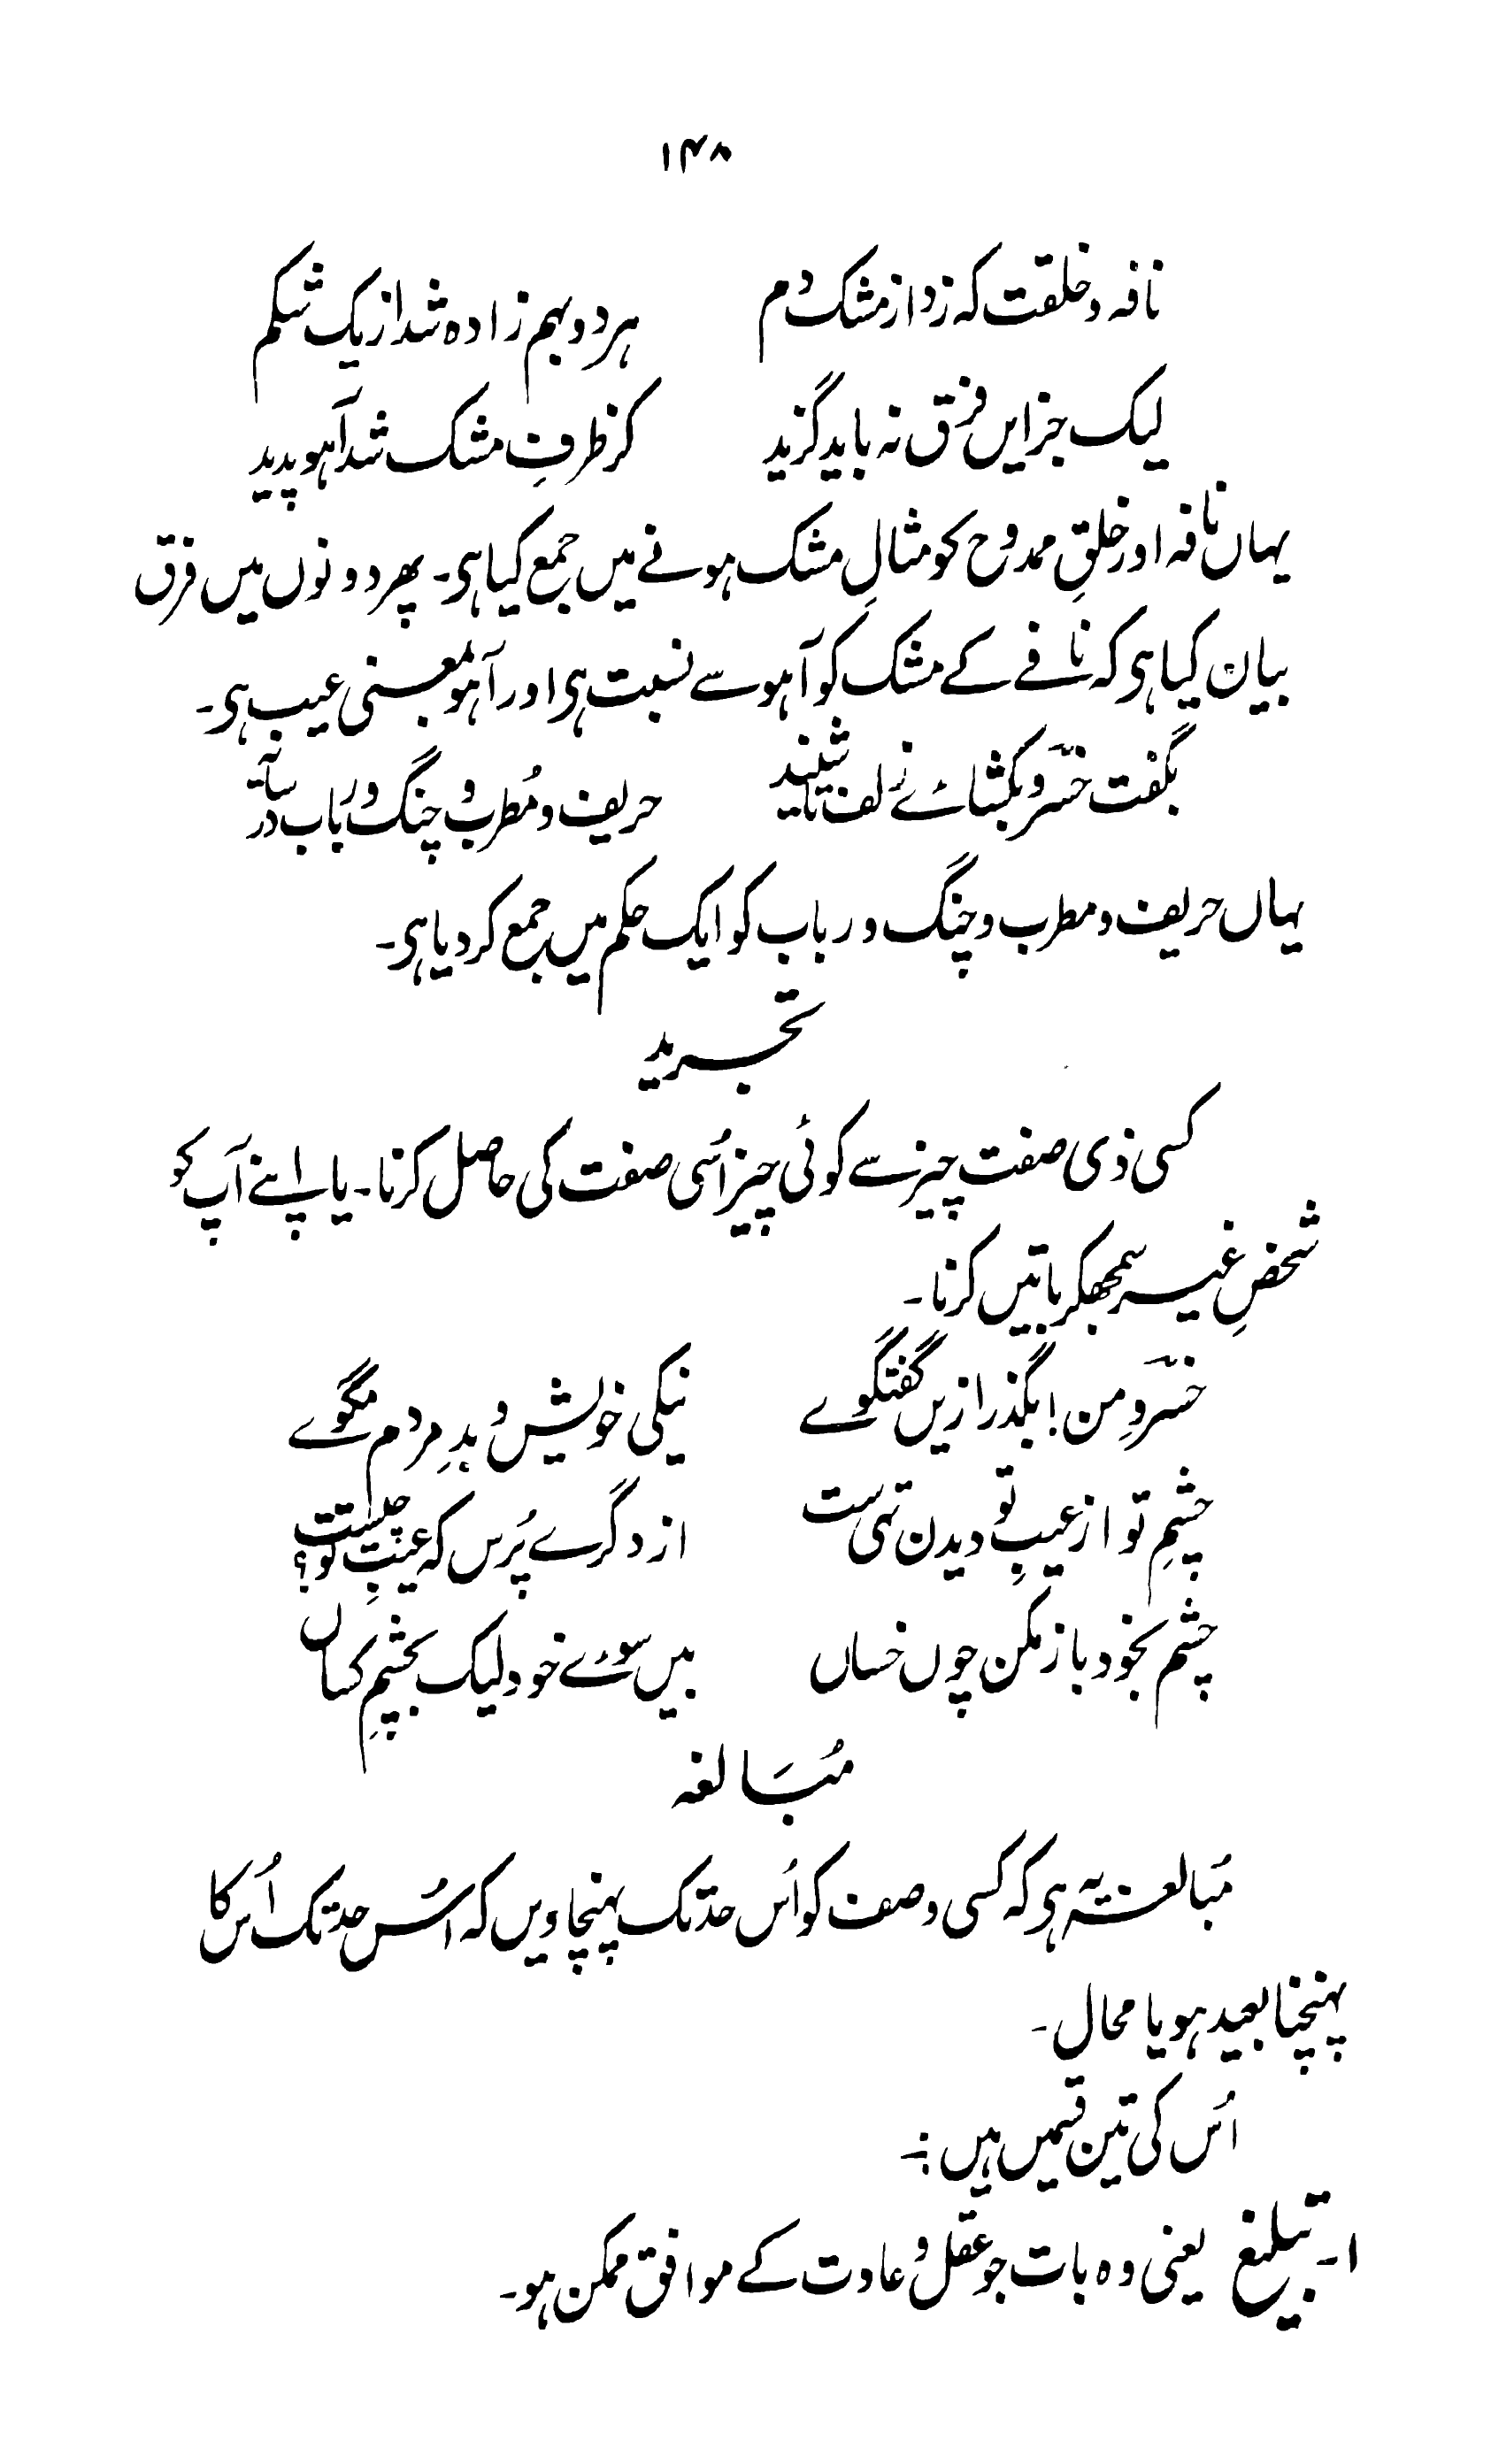 ۱۴۸
نافہ و خلقت کہ زد از مشک دم ہر دو بہم زادہ شد از یک شکم
لیک جز ایں فرق نہ باید گزید کز ظرفِ مشک شد آہو پدید
یہاں نافہ اور خلقِ ممدوح کو مثالِ مشک ہونے میں جمع کیا ہی۔ پھر دونوں میں فرق
بیان کیا ہی کہ نافے کے مشک کو آہو سے نسبت ہی اور آہو بمعنی عیب ہی۔
بگفت خسرو بکشائے زلف تا شیند حریف و مُطرب و چنگ و رباب در سایہ
یہاں حریف و مطرب و چنگ و رباب کو ایک حکم میں جمع کر دیا ہی۔
تجرید
کسی ذی صفت چیز سے کوئی چیز اُسی صفت کی حاصل کرنا۔ یا اپنے آپ کو
شخصِ غیر سمجھکر باتیں کرنا۔
خسروِ من! بگذر ازیں گفتگوے نیکی خویش و بدِ مردم مگوے
چشمِ تو از عیبِ تو دیدن تہی ست از دگرے پُرس کہ عیبِ تو چیست؟
چشم بخود باز مکن چوں خساں بیں سوئے خود لیک بچشمِ کساں
مُبَالغہ
مُبالغہ یہ ہی کہ کسی وصف کو اُس حد تک پہنچاویں کہ اُس حد تک اُس کا
پہنچنا بعید ہو یا محال۔
اُس کی تین قسمیں ہیں :۔
۱۔ تبلیغ یعنی وہ بات جو عقل و عادت کے موافق ممکن ہو۔